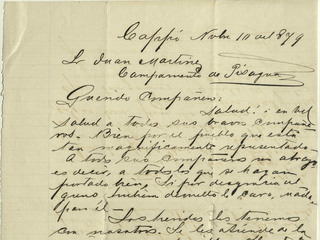 Nvbe 10 del 879
Sr Juan Martinez
Campamento de Pisagua
Querido Compañero:
Salud! i en el
salud a todos sus bravos compañe
ros. Bien por el pueblo que está
tan magnificamente representado
A todos sus compañeros un abrazo
es decir, a todos los que se hayan
portado bien. Si por desgracia
vuelto la cara, nada
para él
Los heridos los tenemos
con nosotros. Se les atiende de la